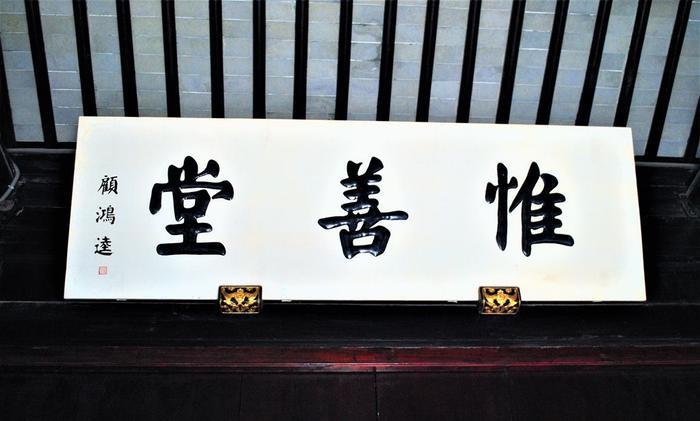 惟善堂
顧鴻逵